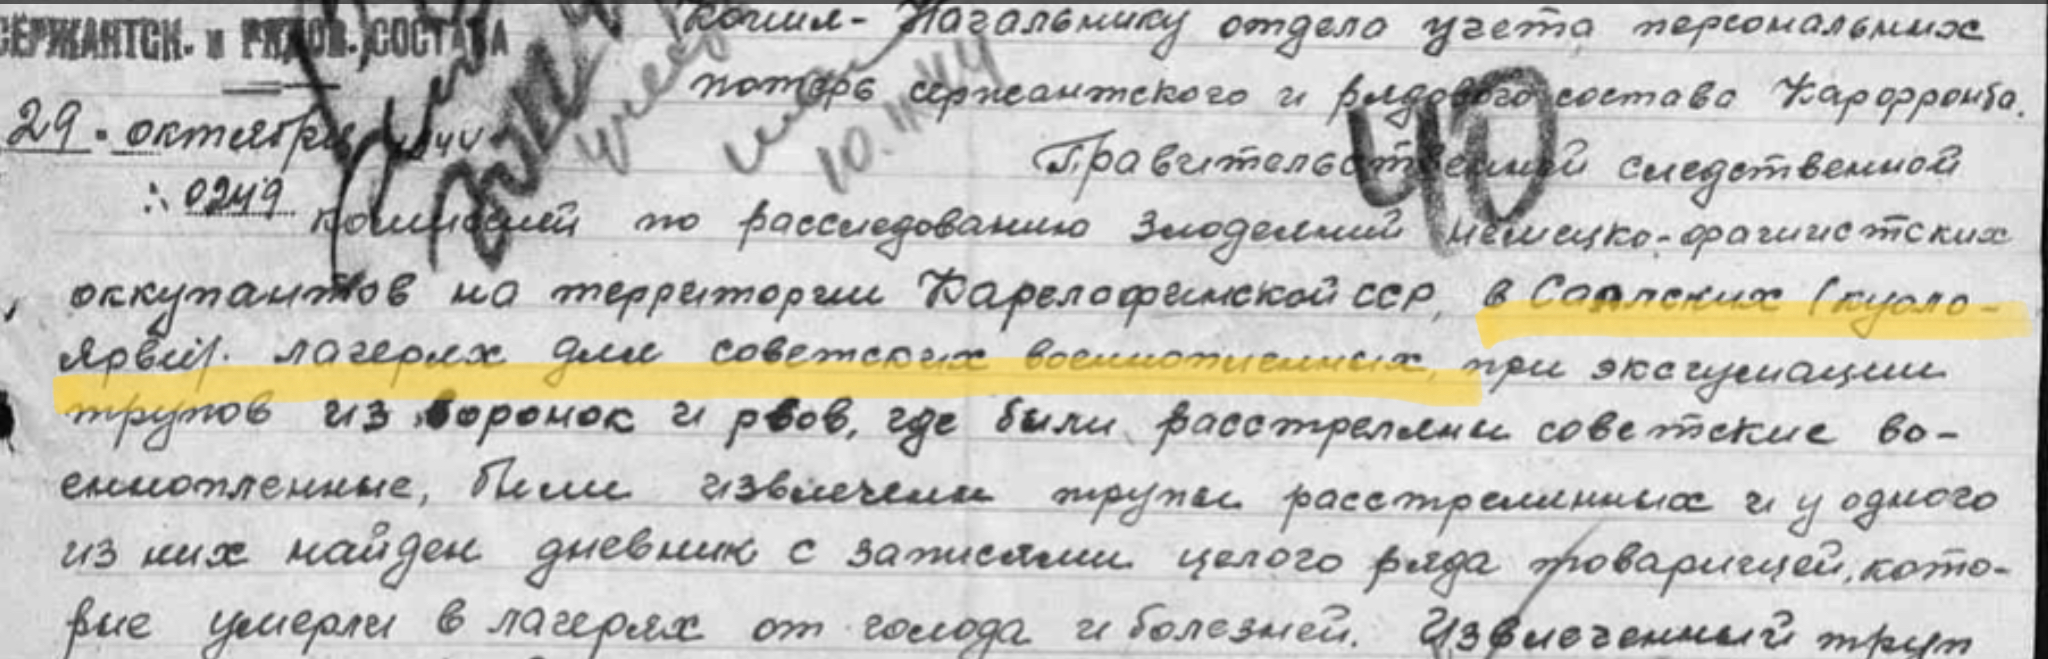 СЕРЖАНТСК. и РЯДОВ. СОСТАВА
Копия - Начальнику отдела учета персональных
потерь сержантского и рядового состава Карфронта.
29 октября 1944
0249
10.
40
Правительственной следственной
комиссией по расследованию злодеяний немецко-фашистских
оккупантов на территории Карелофинской ССР, в Саллских (куоло-
ярви). лагерях для советских военнопленных, при эксгумации
трупов из воронок и рвов, где были расстреляны советские во-
еннопленные, были извлечены трупы расстрелянных и у одного
из них найден дневник с записями целого ряда товарищей, кото-
рые умерли в лагерях от голода и болезней. Извлеченный труп